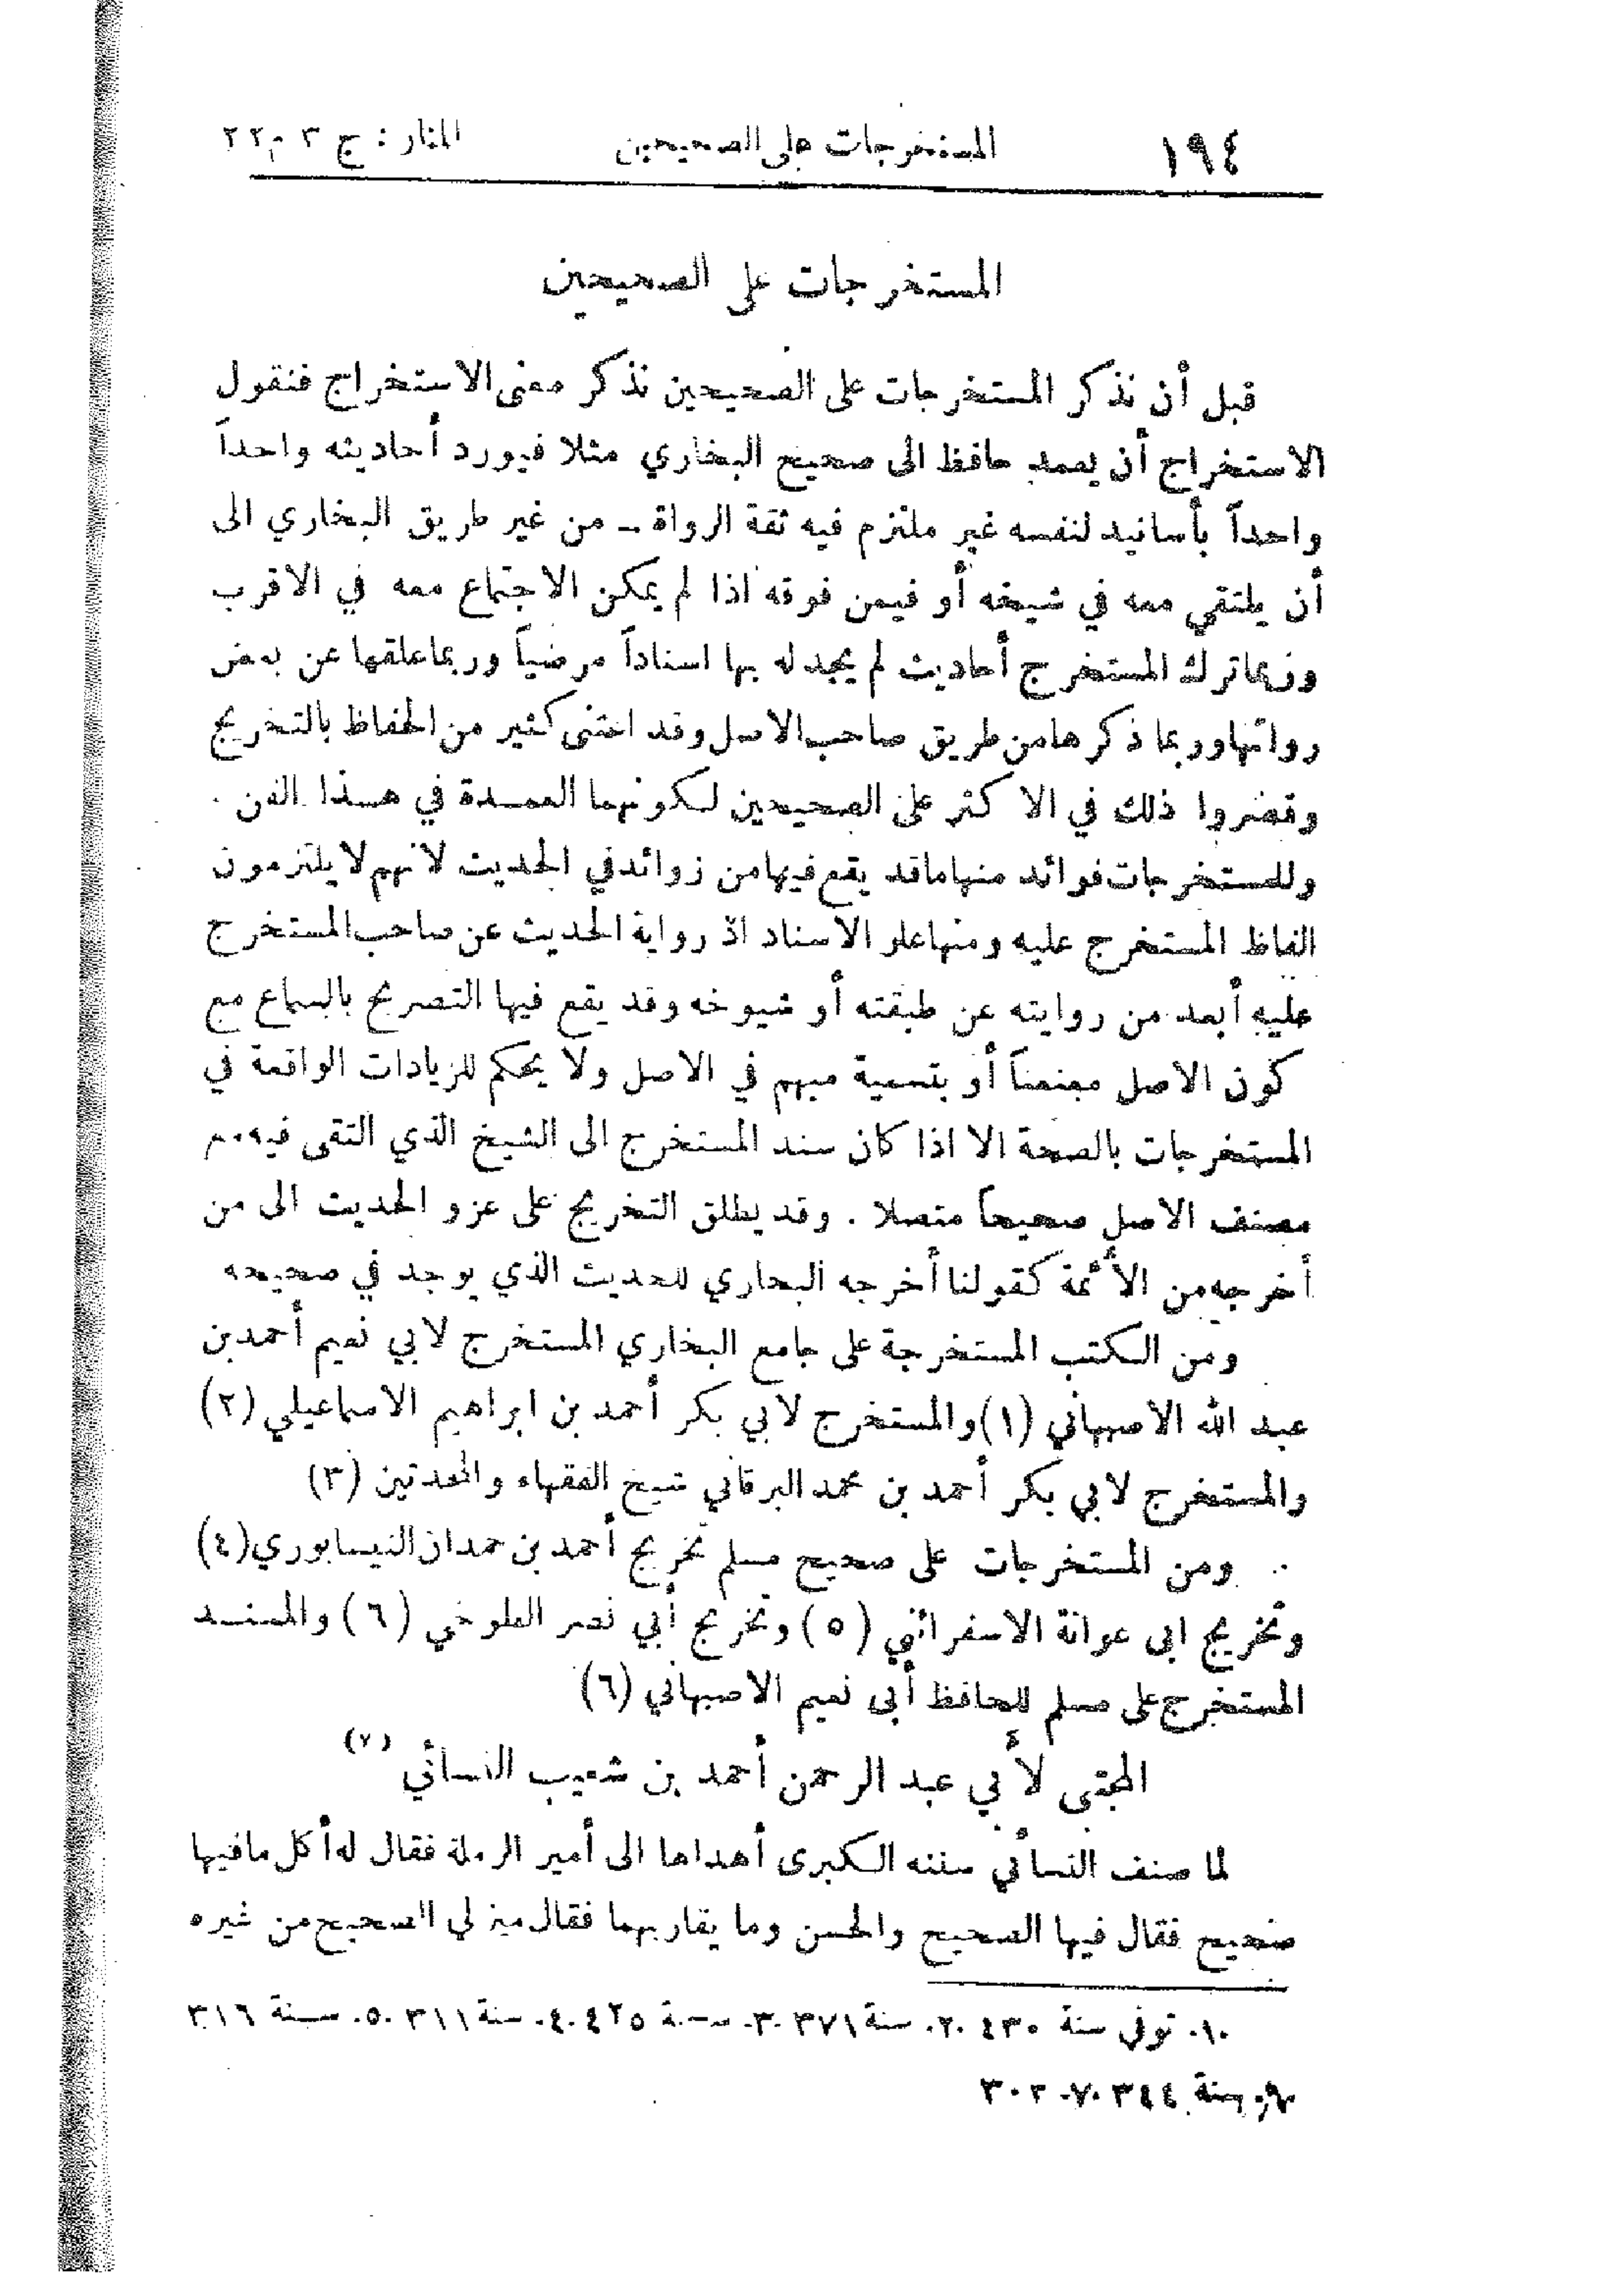 ١٩٤ المستخرجات على الصحيحين المنار : ج ٣ م ٢٢
المستخرجات على الصحيحين
قبل أن نذكر المستخرجات على الصحيحين نذكر معنى الاستخراج فنقول
الاستخراج أن يعمد حافظ الى صحيح البخاري مثلا فيورد أحاديثه واحداً
واحداً بأسانيد لنفسه غير ملتزم فيه ثقة الرواة ــ من غير طريق البخاري الى
أن يلتقي معه في شيخه أو فيمن فوقه اذا لم يمكن الاجتماع معه في الاقرب
وربما ترك المستخرج أحاديث لم يجد له بها اسناداً مرضياً وربما علقها عن بعض
رواتها وربما ذكرها من طريق صاحب الاصل وقد اعتنى كثير من الحفاظ بالتخريج
وقصروا ذلك في الاكثر على الصحيحين لكونهما العمدة في هذا الفن .
وللمستخرجات فوائد منها ما قد يقع فيها من زوائد في الحديث لانهم لا يلتزمون
الفاظ المستخرج عليه ومنها علو الاسناد اذ رواية الحديث عن صاحب المستخرج
عليه أبعد من روايته عن طبقته أو شيوخه وقد يقع فيها التصريح بالسماع مع
كون الاصل معنعناً أو بتسمية مبهم في الاصل ولا يحكم للزيادات الواقعة في
المستخرجات بالصحة الا اذا كان سند المستخرج الى الشيخ الذي التقى فيه مع
مصنف الاصل صحيحاً متصلا . وقد يطلق التخريج على عزو الحديث الى من
أخرجه من الأئمة كقولنا أخرجه البخاري للحديث الذي يوجد في صحيحه
ومن الكتب المستخرجة على جامع البخاري المستخرج لابي نعيم أحمد بن
عبد الله الاصبهاني (١) والمستخرج لابي بكر أحمد بن ابراهيم الاسماعيلي (٢)
والمستخرج لابي بكر أحمد بن محمد البرقاني شيخ الفقهاء والمحدثين (٣)
ومن المستخرجات على صحيح مسلم تخريج أحمد بن حمدان النيسابوري (٤)
وتخريج ابى عوانة الاسفرائني (٥) وتخريج أبي نصر الطوخي (٦) والمسند
المستخرج على مسلم للحافظ أبى نعيم الاصبهاني (٦)
المجتبى لأبي عبد الرحمن أحمد بن شعيب النسائي (٧)
لما صنف النسائي سننه الكبرى أهداها الى أمير الرملة فقال له أكل ما فيها
صحيح فقال فيها الصحيح والحسن وما يقاربهما فقال ميز لي الصحيح من غيره
.١. توفي سنة ٤٣٠ .٢. سنة ٣٧١ .٣. سنة ٤٢٥ .٤. سنة ٣١١ .٥. سنة ٣١٦
.٦. سنة ٣٤٤ .٧. ٣٠٣